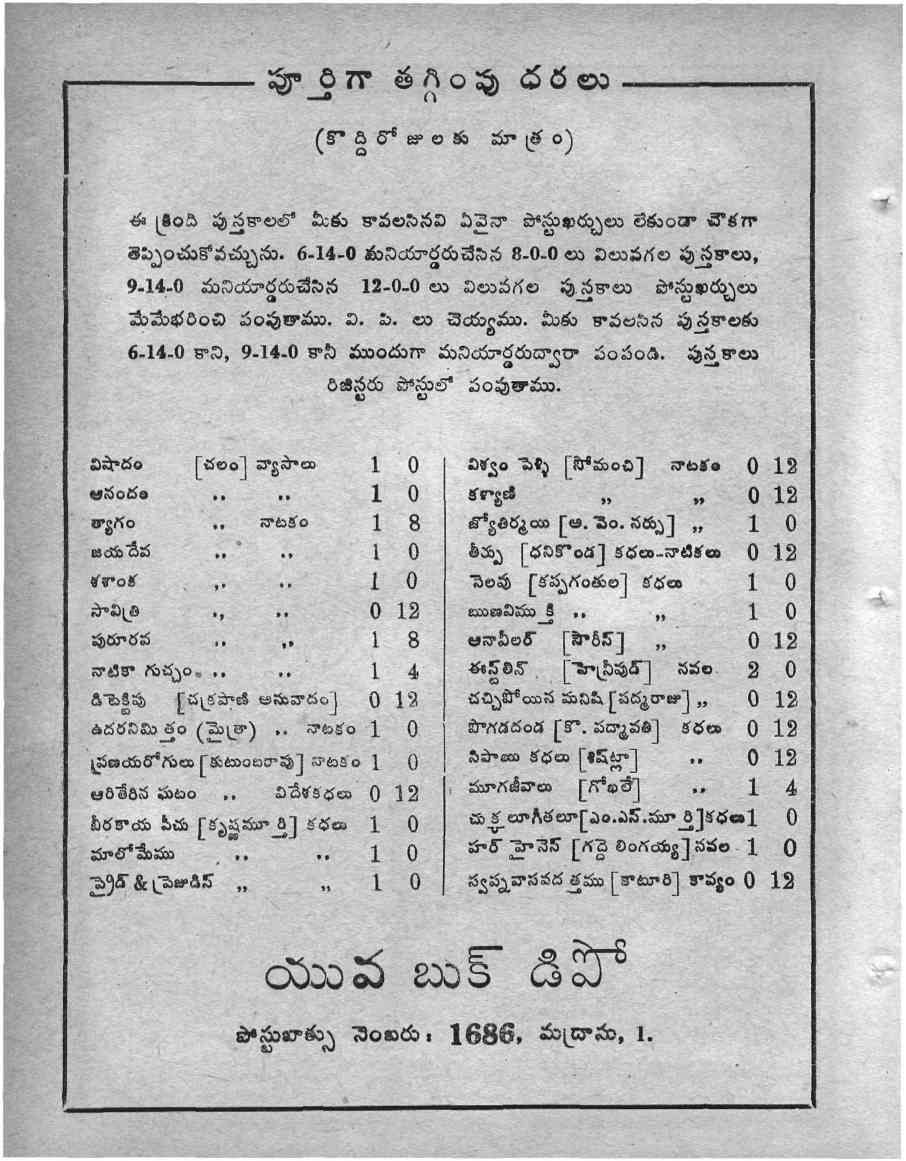 పూర్తిగా తగ్గింపు ధరలు
(కొద్దిరోజులకు మాత్రం)
ఈ క్రింది పుస్తకాలలో మీకు కావలసినవి ఏవైనా పోస్టుఖర్చులు లేకుండా చౌకగా
తెప్పించుకోవచ్చును. 6-14-0 మనియార్డరుచేసిన 8-0-0 లు విలువగల పుస్తకాలు,
9-14-0 మనియార్డరుచేసిన 12-0-0 లు విలువగల పుస్తకాలు పోస్టుఖర్చులు
మేమేభరించి పంపుతాము. వి. పి. లు చెయ్యము. మీకు కావలసిన పుస్తకాలకు
6-14-0 కాని, 9-14-0 కానీ ముందుగా మనియార్డరుద్వారా పంపండి. పుస్తకాలు
రిజిస్టరు పోస్టులో పంపుతాము.
విషాదం [చలం] వ్యాసాలు 1 0
ఆనందం ,, ,, 1 0
త్యాగం ,, నాటకం 1 8
జయదేవ ,, ,, 1 0
శశాంక ,, ,, 1 0
సావిత్రి ,, ,, 0 12
పురూరవ ,, ,, 1 8
నాటికా గుచ్ఛం ,, ,, 1 4
డిటెక్టివు [చక్రపాణి అనువాదం] 0 12
ఉదరనిమిత్తం (మైత్రా) ,, నాటకం 1 0
ప్రణయరోగులు [కుటుంబరావు] నాటకం 1 0
ఆరితేరిన ఘటం ,, విదేశకధలు 0 12
బీరకాయ పీచు [కృష్ణమూర్తి] కధలు 1 0
మాలోమేము ,, ,, 1 0
ప్రైడ్ & ప్రెజుడిస్ ,, ,, 1 0
విశ్వం పెళ్ళి [సోమంచి] నాటకం 0 12
కళ్యాణి ,, ,, 0 12
జ్యోతిర్మయి [ఆ. వెం. నర్సు] ,, 1 0
తీర్పు [ధనికొండ] కధలు-నాటికలు 0 12
నెలవు [కప్పగంతుల] కధలు 1 0
ఋణవిముక్తి ,, ,, 1 0
ఆనావీలర్ [సౌరీస్] ,, 0 12
ఈస్ట్‌లిన్ [హెన్రీవుడ్] నవల 2 0
చచ్చిపోయిన మనిషి [పద్మరాజు] ,, 0 12
పొగడదండ [కొ. పద్మావతి] కధలు 0 12
సిపాయి కధలు [శిష్‌ట్లా] ,, 0 12
మూగజీవాలు [గోఖలే] ,, 1 4
చుక్కలూగీతలూ [ఎం.ఎన్.మూర్తి] కధలు 1 0
హర్ హైనెస్ [గద్దె లింగయ్య] నవల 1 0
స్వప్నవాసవదత్తము [కాటూరి] కావ్యం 0 12
యువ బుక్ డిపో
పోస్టుబాక్సు నెంబరు: 1686, మద్రాసు, 1.